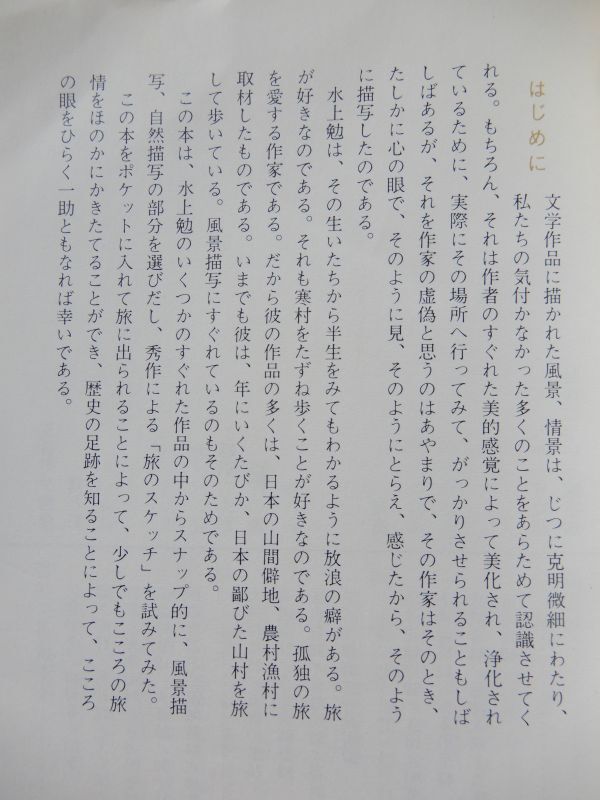 はじめに
文学作品に描かれた風景、情景は、じつに克明微細にわたり、
私たちの気付かなかった多くのことをあらためて認識させてく
れる。もちろん、それは作者のすぐれた美的感覚によって美化され、浄化され
ているために、実際にその場所へ行ってみて、がっかりさせられることもしば
しばあるが、それを作家の虚偽と思うのはあやまりで、その作家はそのとき、
たしかに心の眼で、そのように見、そのようにとらえ、感じたから、そのよう
に描写したのである。
水上勉は、その生いたちから半生をみてもわかるように放浪の癖がある。旅
が好きなのである。それも寒村をたずね歩くことが好きなのである。孤独の旅
を愛する作家である。だから彼の作品の多くは、日本の山間僻地、農村漁村に
取材したものである。いまでも彼は、年にいくたびか、日本の鄙びた山村を旅
して歩いている。風景描写にすぐれているのもそのためである。
この本は、水上勉のいくつかのすぐれた作品の中からスナップ的に、風景描
写、自然描写の部分を選びだし、秀作による「旅のスケッチ」を試みてみた。
この本をポケットに入れて旅に出られることによって、少しでもこころの旅
情をほのかにかきたてることができ、歴史の足跡を知ることによって、こころ
の眼をひらく一助ともなれば幸いである。